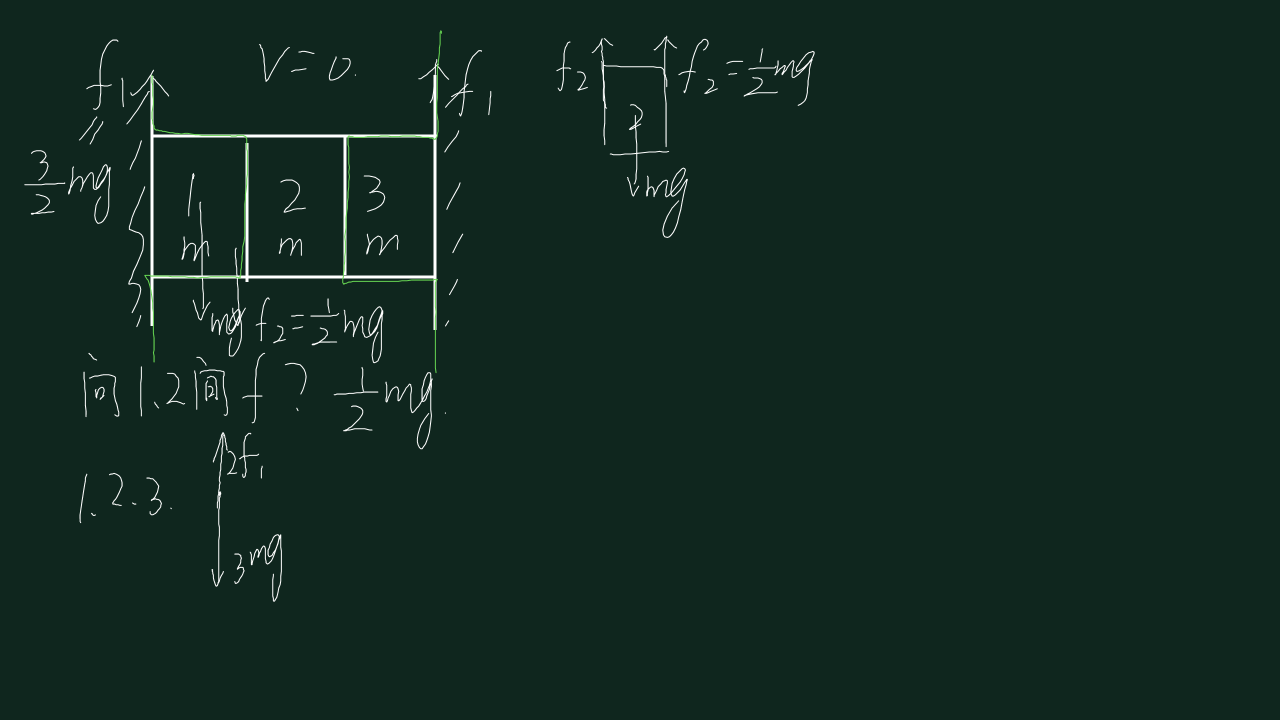 f₁ V=0. f₁
〃
3/2 mg
1 2 3
m m m
mg f₂=1/2 mg
问1.2间f? 1/2 mg.
1.2.3. 2f₁
3mg
f₂ f₂=1/2 mg
2
mg